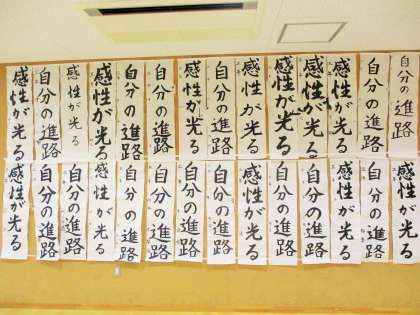 自分の進路
自分の進路
感性が光る
感性が光る
感性が光る
感性が光る
自分の進路
感性が光る
自分の進路
自分の進路
感性が光る
感性が光る
自分の進路
感性が光る
感性が光る
自分の進路
感性が光る
自分の進路
自分の進路
感性が光る
自分の進路
自分の進路
自分の進路
自分の進路
感性が光る
自分の進路
自分の進路
感性が光る